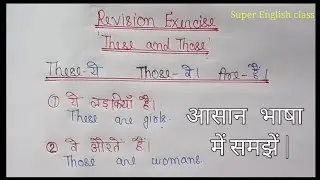 Super English class
Revision Exercise
These and Those
These-ये Those-वे। Are-हैं।
① ये लड़कियाँ हैं।
These are girls.
② वे औरतें हैं।
Those are womans.
आसान भाषा
में समझें।